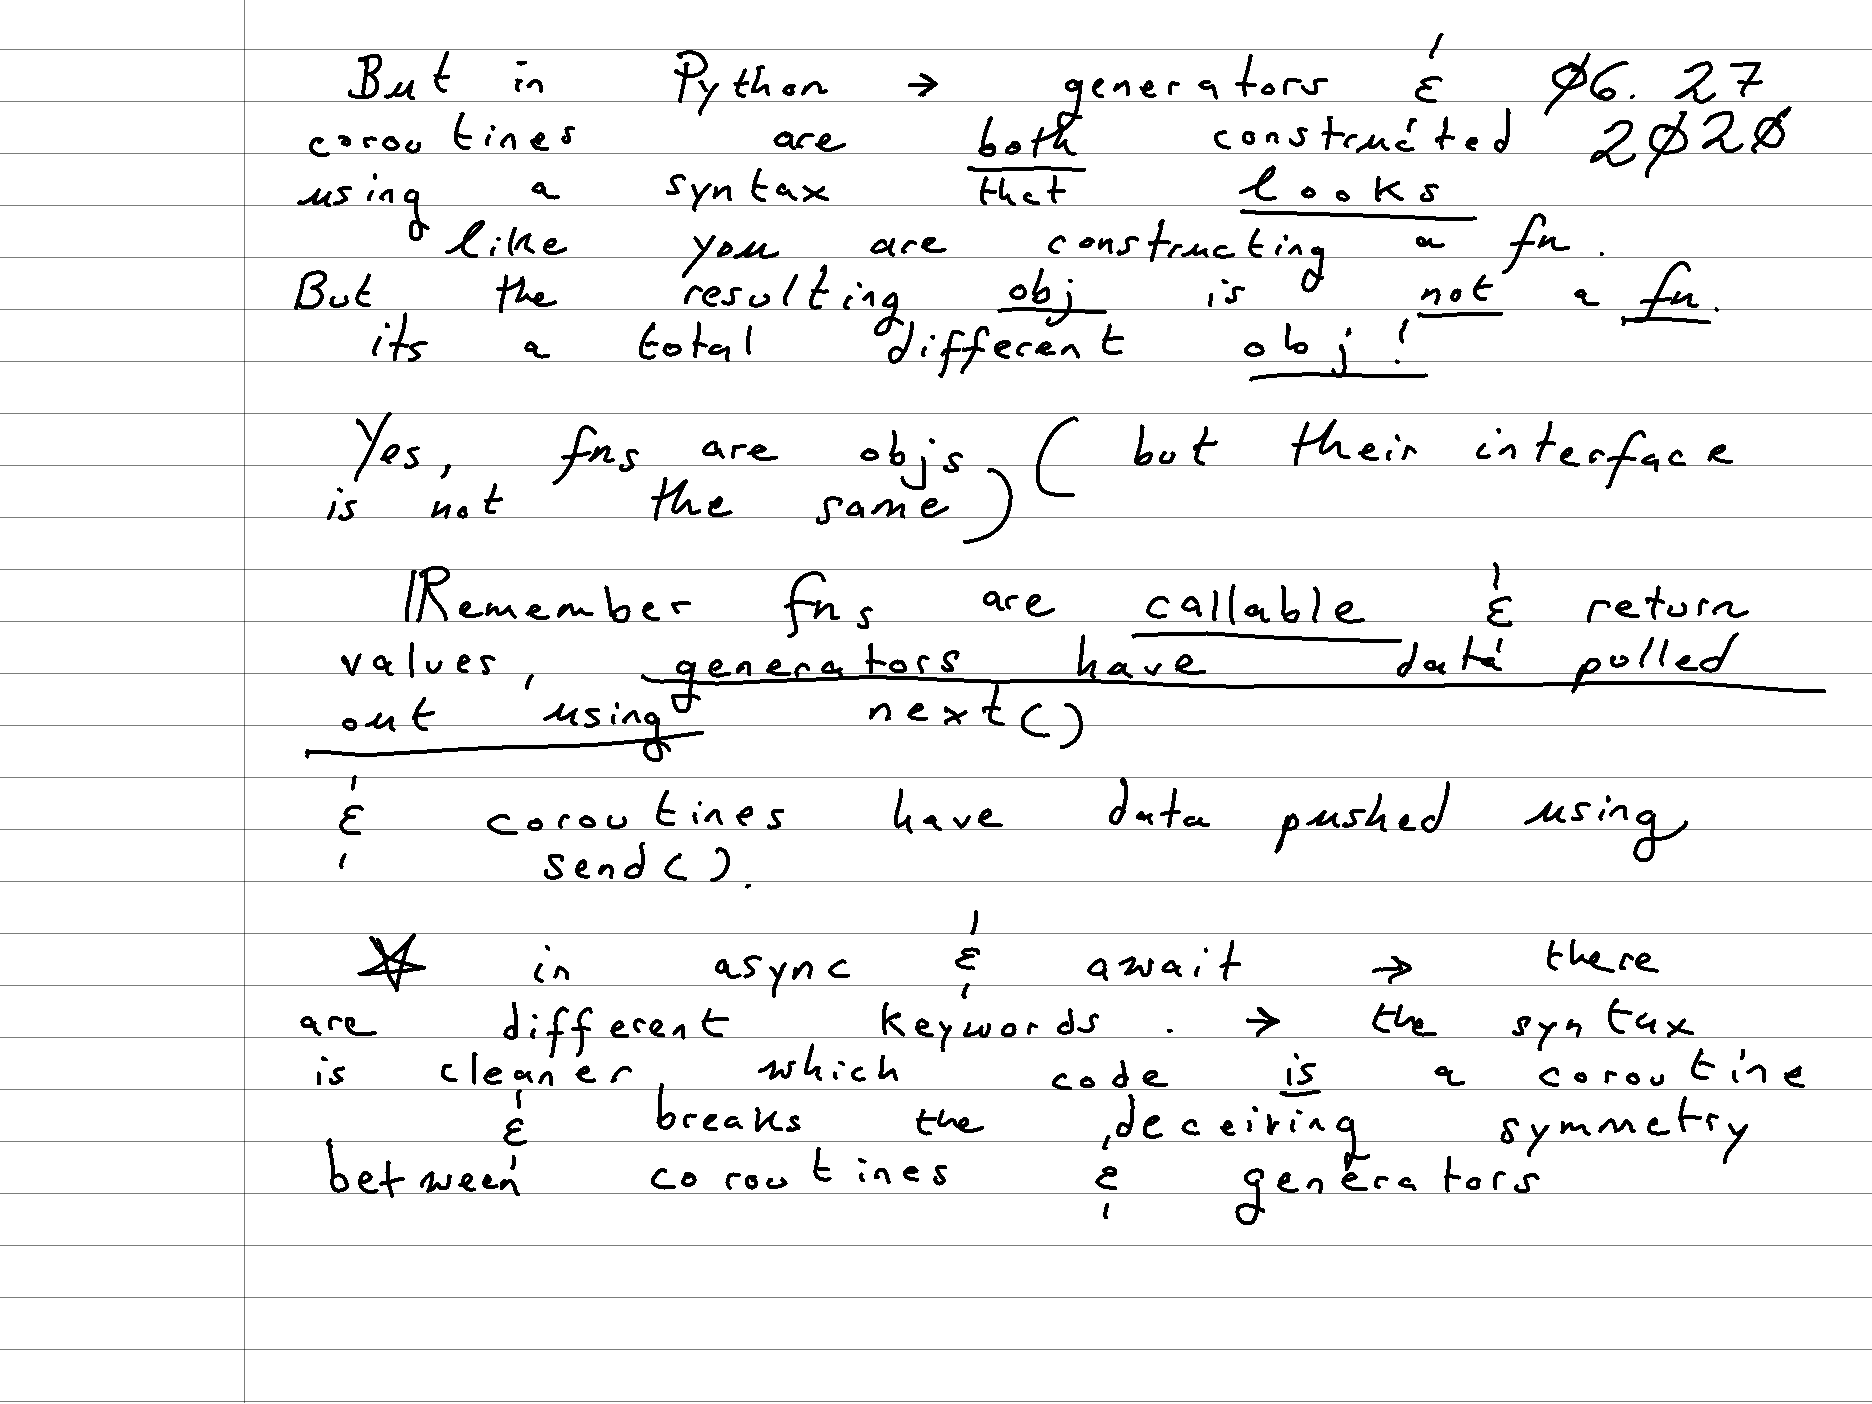 But in Python → generators & Ø6.27
coroutines are both constructed 2Ø2Ø
using a syntax that looks
like you are constructing a fn.
But the resulting obj is not a fn.
its a total different obj!
Yes, fns are objs (but their interface
is not the same)
Remember fns are callable & return
values, generators have data pulled
out using next()
& coroutines have data pushed using
send().
☆ in async & await → there
are different keywords. → the syntax
is cleaner, which code is a coroutine
& breaks the deceiving symmetry
between coroutines & generators